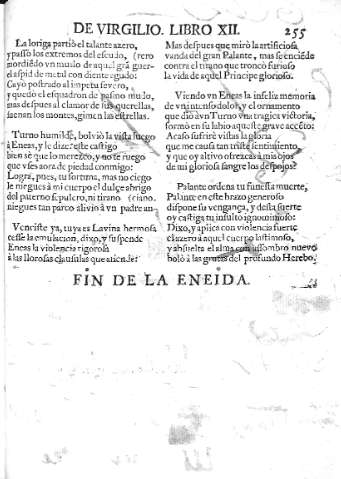 DE VIRGILIO. LIBRO XII. 255
La loriga partiò el talante azero,
y passò los extremos del escudo, (rero
mordiẽdo vn muslo de aquel grã guer-
el aspid de metal con diente agudo:
Cayò postrado al impetu severo,
y quedò el esquadron de pasmo mudo,
mas despues al clamor de sus querellas,
suenan los montes, gimen las estrellas.
Turno humilde, bolviò la vista luego
à Eneas, y le dize: este castigo
bien sè que lo merezco, y no te ruego
que vses aora de piedad conmigo:
Logra, pues, tu fortuna, mas no ciego
le niegues à mi cuerpo el dulçe abrigo
del paterno sepulcro, ni tirano (ciano.
niegues tan parco alivio à vn padre an-
Venciste ya, tuya es Lavina hermosa
cesse la emulacion, dixo, y suspende
Eneas la violencia rigorosa
à las llorosas clausulas que atiende:
Mas despues que mirò la artificiosa
vanda del gran Palante, mas se enciẽde
contra el tirano que troncò furioso
la vida de aquel Principe glorioso.
Viendo vn Eneas la infeliz memoria
de vn intenso dolor, y el ornamento
que diò à vn Turno vna tragica victoria,
formò en su labio aqueste grave accẽto:
Acaso sufrirè vistas la gloria
que me causa tan triste sentimiento,
y que oy altivo ofrezcas à mis ojos
de mi gloriosa sangre los despojos?
Palante ordena tu funesta muerte,
Palante en este brazo generoso
dispone su venganza, y desta suerte
oy castiga tu insulto ignominioso:
Dixo, y aplica con violencia fuerte
el azero à aquel cuerpo lastimoso,
y absuelta el alma con assombro nuevo
bolò à las grutas del profundo Herebo.
FIN DE LA ENEIDA.